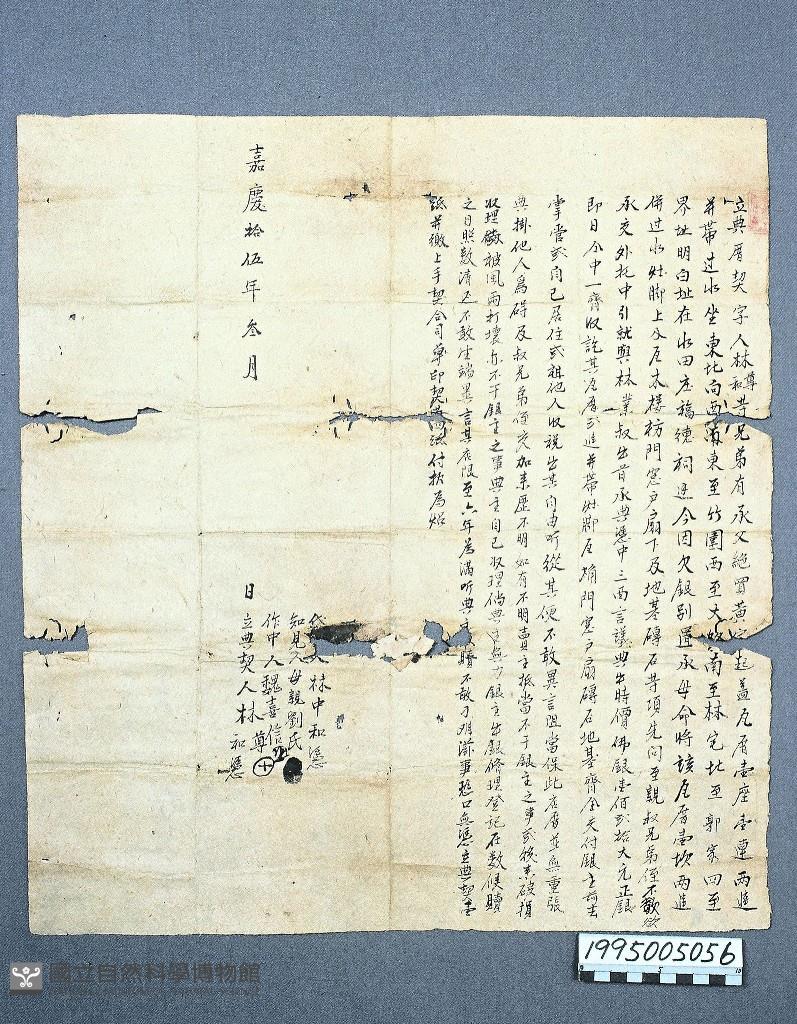 立典厝契字人林尊和等兄弟有承父絕買黃宅起蓋瓦厝壹座壹連兩進
并帶过水坐東北向西南東至竹圍西至大路南至林宅北至郭家四至
界址明白址在水田庄福德祠邊今因欠銀別置承母命將該瓦厝壹坎兩進
併过水灶脚上及瓦木楼枋門窓户扇下及地基磚石等項先问至親叔兄弟侄不敢欲
承交外托中引就與林業叔出首承典憑中三面言議典出時價佛銀壹佰弍拾大元正銀
即日仝中一齊收訖其瓦厝弍進并帶灶脚瓦桷門窓户扇磚石地基齊全交付銀主前去
掌管或自己居住或租他人收稅出其自由听從其便不敢異言阻當保此店厝並無重張
典掛他人爲碍及叔兄弟侄交加來歷不明如有不明典主抵當不干銀主之事或後来破損
收理儆被風雨打壞亦不干銀主之事典主自己收理倘典主無力銀主出銀修理登記在数候贖
之日照数清还不敢生端異言其店限至六年爲滿听典主贖不敢刁难滋事恐口無憑立典契壹
帋并繳上手契合司單印契四帋付执爲炤
代筆人林中和憑
知見人母親劉氏
作中人魏喜信
嘉慶拾伍年叁月 日立典契人林尊和憑
1995005056
國立自然科學博物館